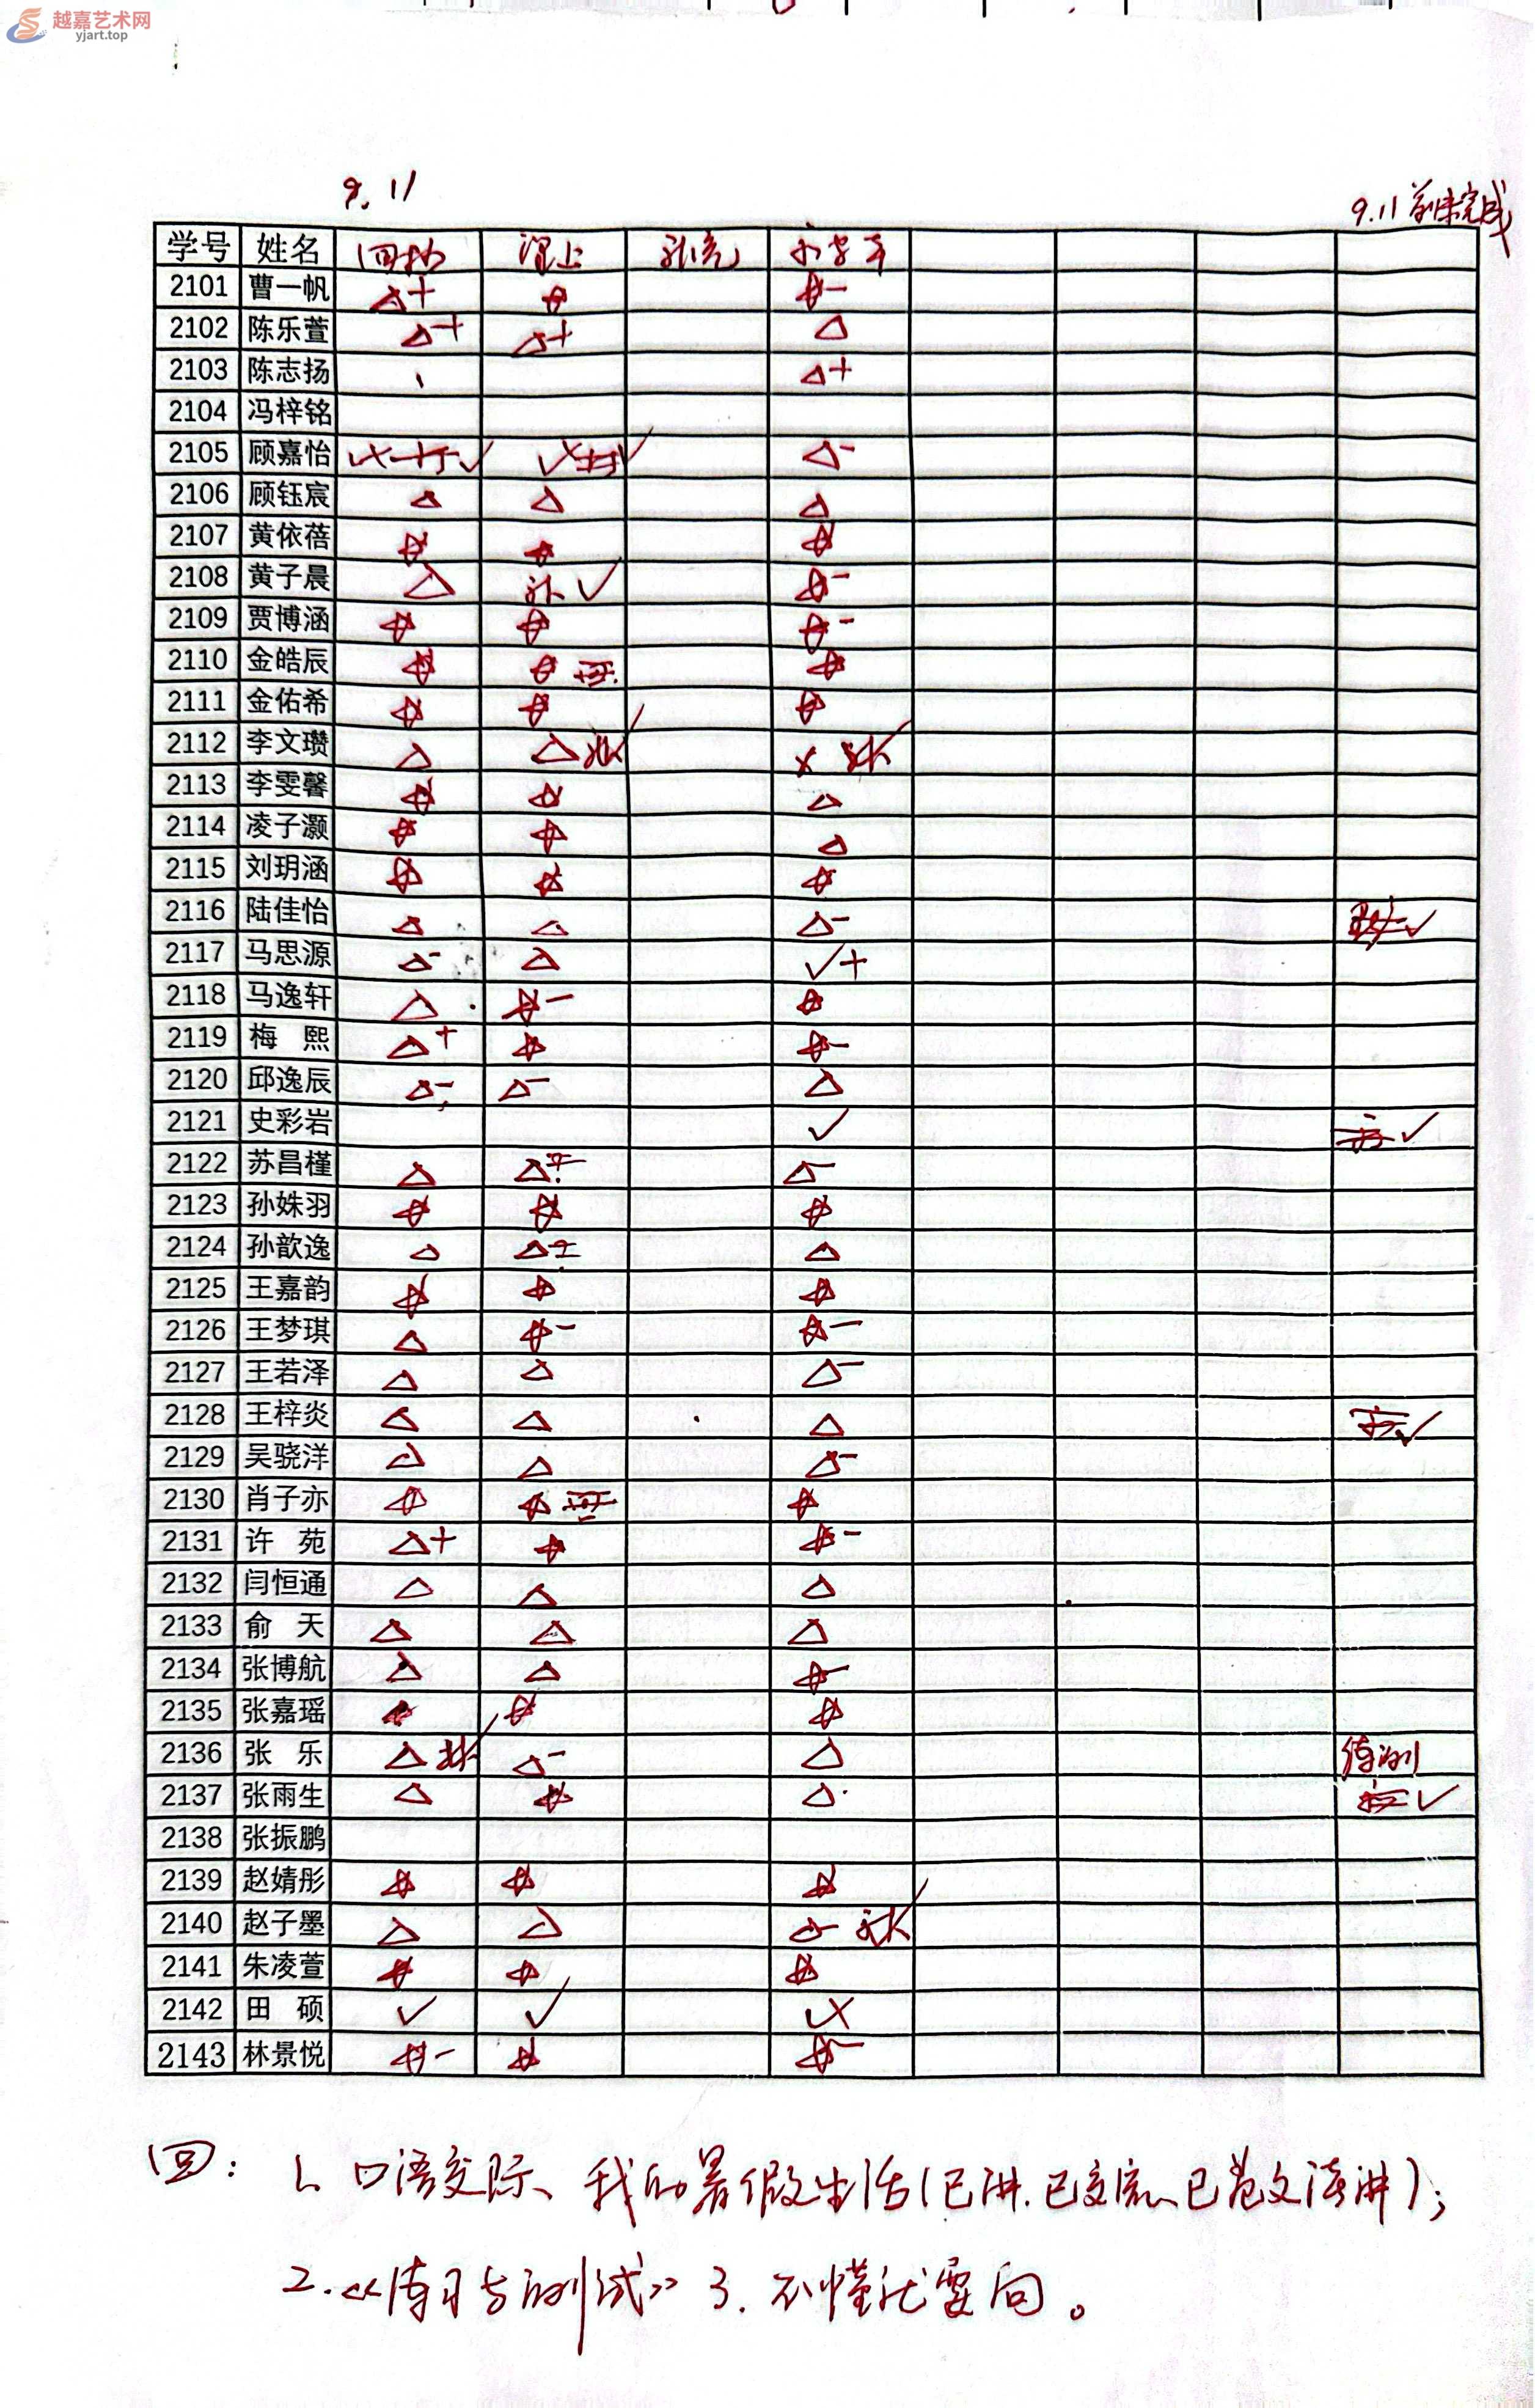 越嘉艺术网
yjart.top
9.11
9.11 前未完成
学号 姓名 课上
2101 曹一帆 △+ ☆ ☆-
2102 陈乐萱 △+ △+ △
2103 陈志扬 △+
2104 冯梓铭
2105 顾嘉怡 △-
2106 顾钰宸 △ △ △
2107 黄依蓓 ☆ ☆ ☆
2108 黄子晨 △ 补 ✓ ☆-
2109 贾博涵 ☆ ☆ ☆-
2110 金皓辰 ☆ ☆ ☆
2111 金佑希 ☆ ☆ ☆
2112 李文瓒 △ △
2113 李雯馨 ☆ ☆ △
2114 凌子灏 ☆ ☆ △
2115 刘玥涵 ☆ ☆ ☆
2116 陆佳怡 △ △ △- ✓
2117 马思源 △- △ ✓+
2118 马逸轩 △ ☆- ☆
2119 梅 熙 △+ ☆ ☆-
2120 邱逸辰 △- △- △
2121 史彩岩 ✓ ✓
2122 苏昌槿 △ △ △-
2123 孙姝羽 ☆ ☆ ☆
2124 孙歆逸 △ △ △
2125 王嘉韵 ☆ ☆ ☆
2126 王梦琪 △ ☆- ☆-
2127 王若泽 △ △ △-
2128 王梓炎 △ △ △ ✓
2129 吴骁洋 △ △ △-
2130 肖子亦 ☆ ☆ ☆
2131 许 苑 △+ ☆ ☆-
2132 闫恒通 △ △ △
2133 俞 天 △ △ △
2134 张博航 △ △ ☆-
2135 张嘉瑶 ☆ ☆ ☆
2136 张 乐 △ △- △
2137 张雨生 △ ☆ △ ✓
2138 张振鹏
2139 赵婧彤 ☆ ☆ ☆
2140 赵子墨 △ △ △-
2141 朱凌萱 ☆ ☆ ☆
2142 田 硕 ✓ ✓
2143 林景悦 ☆- ☆ ☆-
回: 1、口语交际、我的暑假生活(已讲.已交流、已范文读讲);
2.《练习与测试》 3. 不懂就要问。